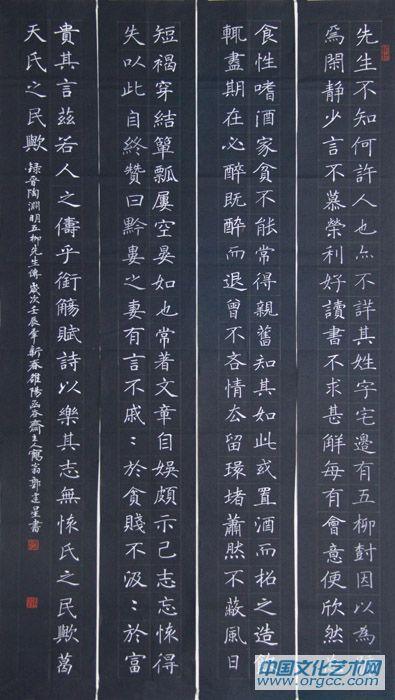 先生不知何許人也亦不詳其姓字宅邊有五柳樹因以為
焉閑靜少言不慕榮利好讀書不求甚解每有會意便欣然
食性嗜酒家貧不能常得親舊知其如此或置酒而招之造
輒盡期在必醉既醉而退曾不吝情去留環堵蕭然不蔽風日
短褐穿結簞瓢屢空晏如也常著文章自娛頗示己志忘懷得
失以此自終贊曰黔婁之妻有言不戚〻於貧賤不汲〻於富
貴其言茲若人之儔乎銜觴賦詩以樂其志無懷氏之民歟葛
天氏之民歟
錄晉陶淵明五柳先生傳歲次壬辰年新春雒陽函谷齋主人翁郭建星書
中国文化艺术网
www.orgcc.com